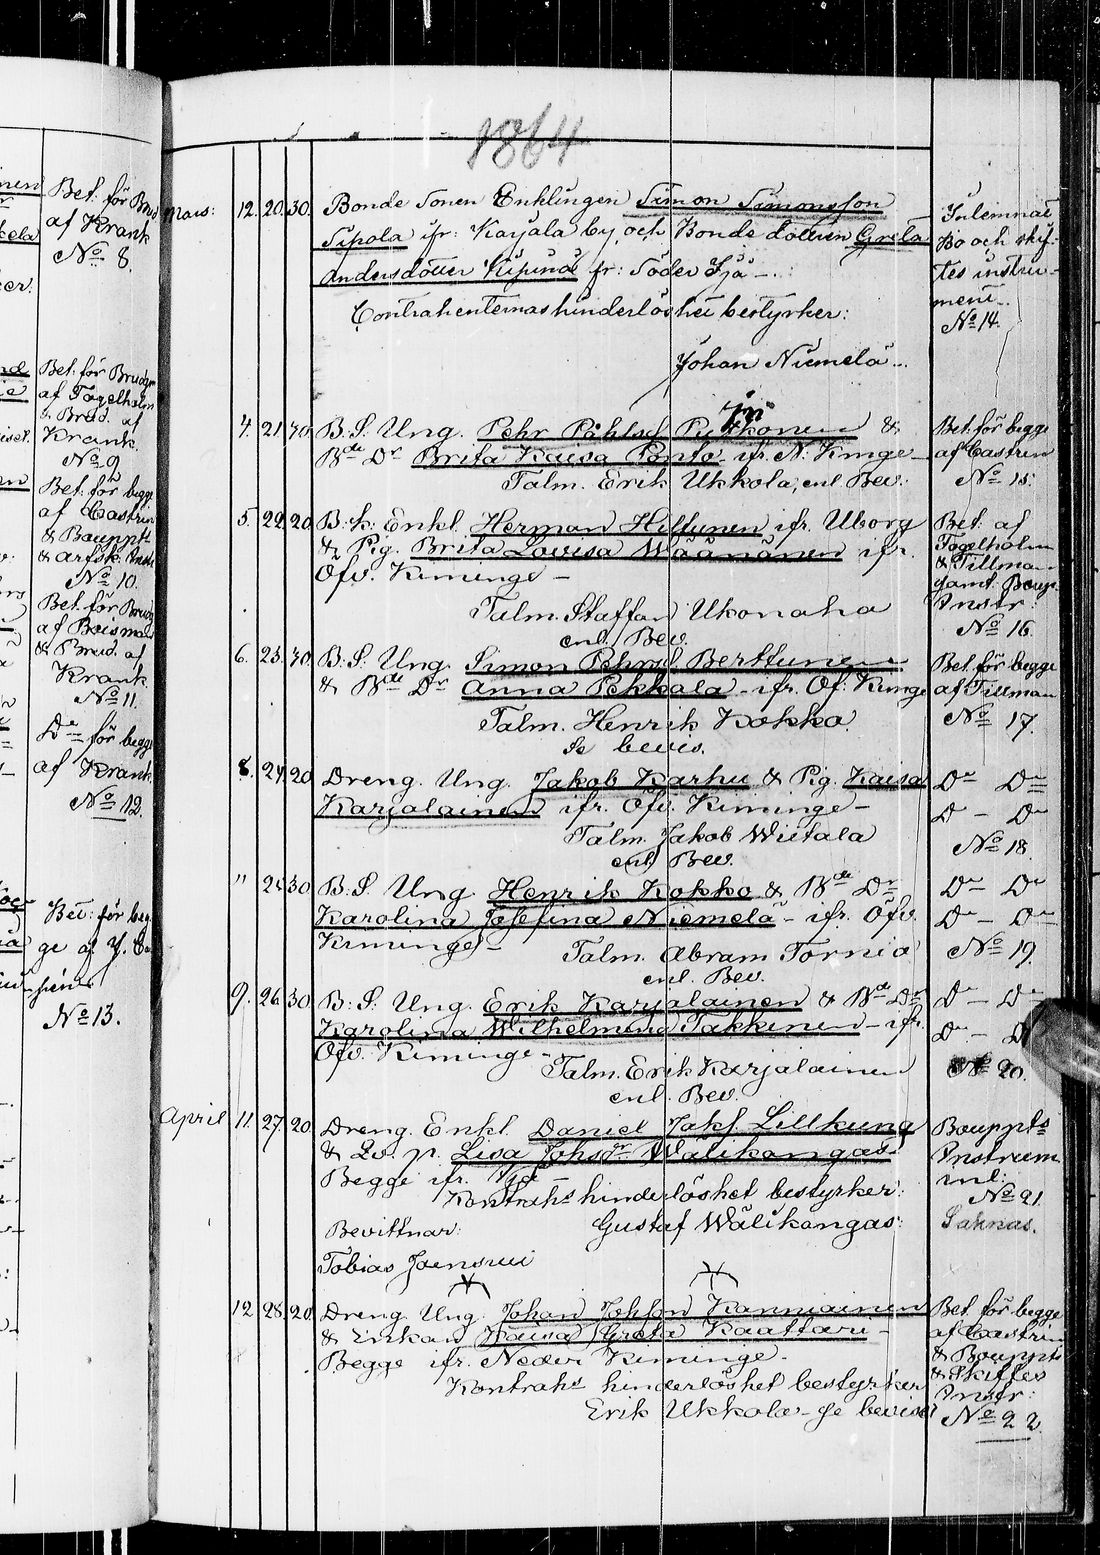 1864
Bet: för Brud
af Krank
No 8.
Bet. för Brudgm
af Fogelholm
& Brud. af
Krank.
No 9
Bet. för begge
af Castrin
& Bouppt
No 10.
Bet. för Brudg
af Boisman
& Brud. af
Krank
No 11.
Do för begge
af Krank.
No 12.
Bet: för beg-
ge af J. Ca
No 13.
Mars: 12. 20. 30. Bonde Sonen Enklingen Simon Simonsson
Sipola ifr: Karjala by, och Bonde dottren Greta
Andersdotter Kipinä fr: Söder Ijä –.:
Contrahenternas hinderlöshet bestyrker:
Johan Niemelä –.
Inlemnat
Bo och skif-
tes instru-
ment –.
No 14.
4. 21. 30. B. S. Ung. Pehr Påhls Putkonen &
Bde Dr Brita Kaisa Ponto ifr. N. Kimge –
Talm. Erik Ukkola, enl. Bev.
Bet. för begge
af Castren
No 15.
5. 22. 20. B. k. Enkl. Herman Hiltunen ifr. Uborg
& Pig. Brita Lovisa Wäänänen ifr.
Öfv. Kiminge –
Talm. Staffan Ukonaha
enl. Bev.
Bet. af
Fogelholm
& Tillman
samt Boup.
Instr:
No 16.
6. 23. 30. B. S. Ung. Simon Pehrs Berttunen
& Bde Dr Anna Pekkala – ifr. Öf. Kimge
Talm. Henrik Kokko.
Se bevis.
Bet. för begge
af Tillman
No 17.
8. 24. 20 Dreng. Ung. Jakob Karhu & Pig. Kaisa
Karjalainen ifr. Öfv. Kiminge –
Talm. Jakob Wietala
enl. Bev.
Do Do
Do – Do
No 18.
" 25. 30. B. S. Ung Henrik Kokko & Bde Dr
Karolina Josefina Niemelä – ifr. Öfv.
Kiminge –
Talm. Abram Tornio
enl. Bev.
Do Do
Do – Do
No 19.
9. 26. 30. B. S. Ung. Erik Karjalainen & Bde Dr
Karolina Wilhelmina Takkinen – ifr.
Öfv. Kiminge –
Talm. Erik Karjalainen
enl. Bev.
Do – Do
Do – Do
No 20.
April 11. 27. 20. Dreng. Enkl. Daniel Jaks. Lillkung
& Qv. p. Lisa Johsdr Wälikangas
Begge ifr. Ijå –
Kontrahs hinderlöshet bestyrker:
Bevittnar: Gustaf Wälikangas:
Tobias Joensuu
Bouppts
Instrum
enl:
No 21
Saknas.
12. 28. 20. Dreng Ung. Johan Johsson Kanniainen
& Enkan Kaisa Greta Kaattari –
Begge ifr. Neder Kiminge. –
Kontrahs hinderlöshet bestyrker
Erik Ukkola – Se beviset
Bet. för begge
af Castrin
& Bouppts
& Skiftes
Instr:
No 22.